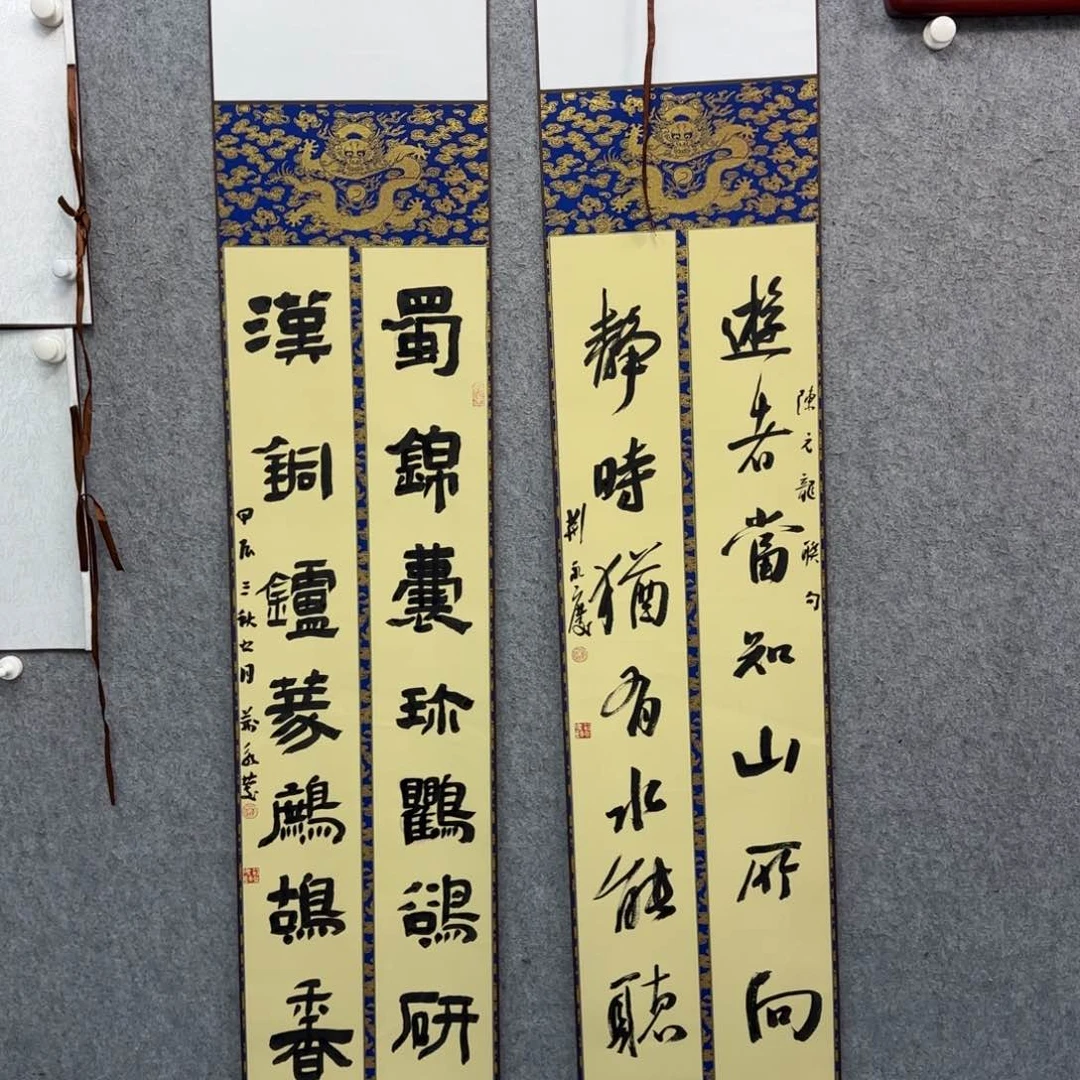 遊者當知山所向
陳元龍聯句
靜時猶有水能聽
荆永慶
蜀錦囊珎鸜鵒研
漢銅鑪篆鷓鴣香
甲辰三秋之月荆永慶